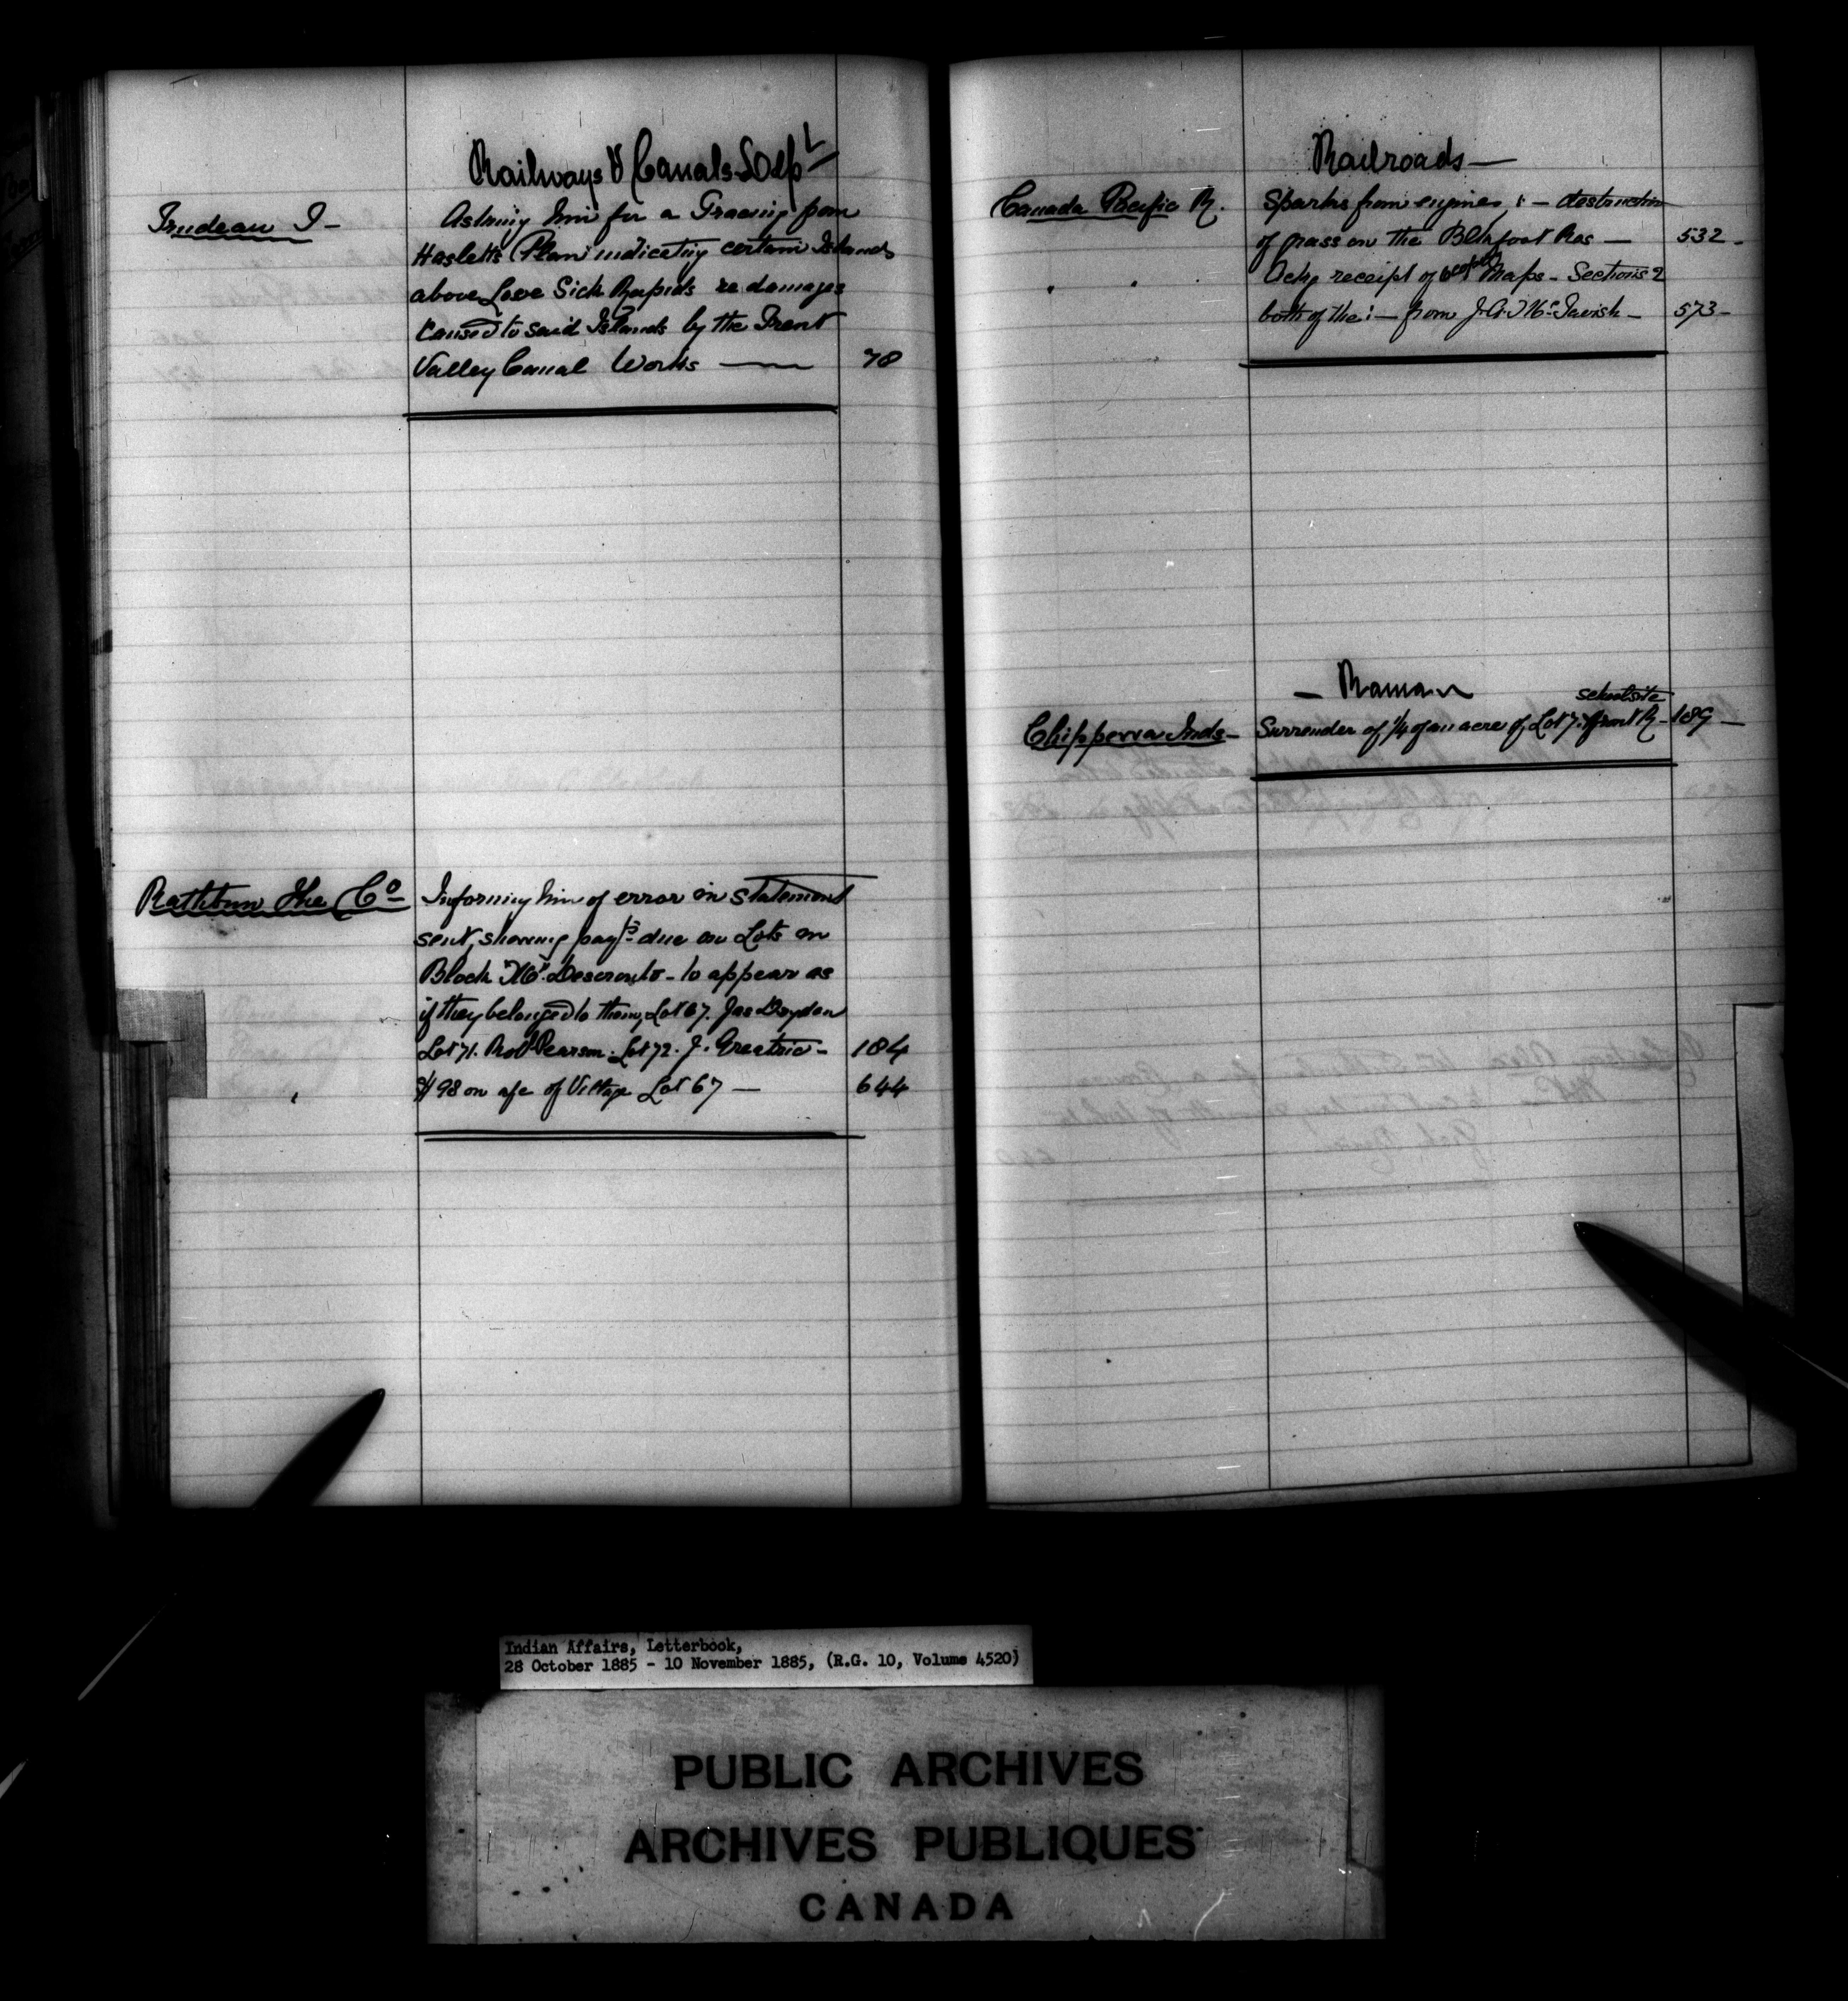 Railways & Canals Dept
Trudeau T -
Asking him for a Tracing from
Hasletts Plan indicating certain Islands
above Love Sick Rapids re damages
caused to said Islands by the Trent
Valley Canal Works — 78
Rathbun The Co
Informing him of error in statement
sent, showing payts due on Lots on
Block "K" Deseronto - to appear as
if they belonged to them, Lot 67. Jas Dryden
Lot 71. Robt Pearson. Lot 72. J. Greatrix - 184
$98 on a/c of Village Lot 67 — 644
Railroads —
Canada Pacific R.
Sparks from engines :- destruction
of grass on the Blkfoot Res — 532 -
Ackg receipt of Maps - Sections 2
both of the :- from J. A. McTavish - 573 -
- Rama
Chippewa Inds -
school site
Surrender of 1/4 of an acre of Lot 7. front R - 189 -
Indian Affairs, Letterbook,
28 October 1885 - 10 November 1885, (R.G. 10, Volume 4520)
PUBLIC ARCHIVES
ARCHIVES PUBLIQUES
CANADA